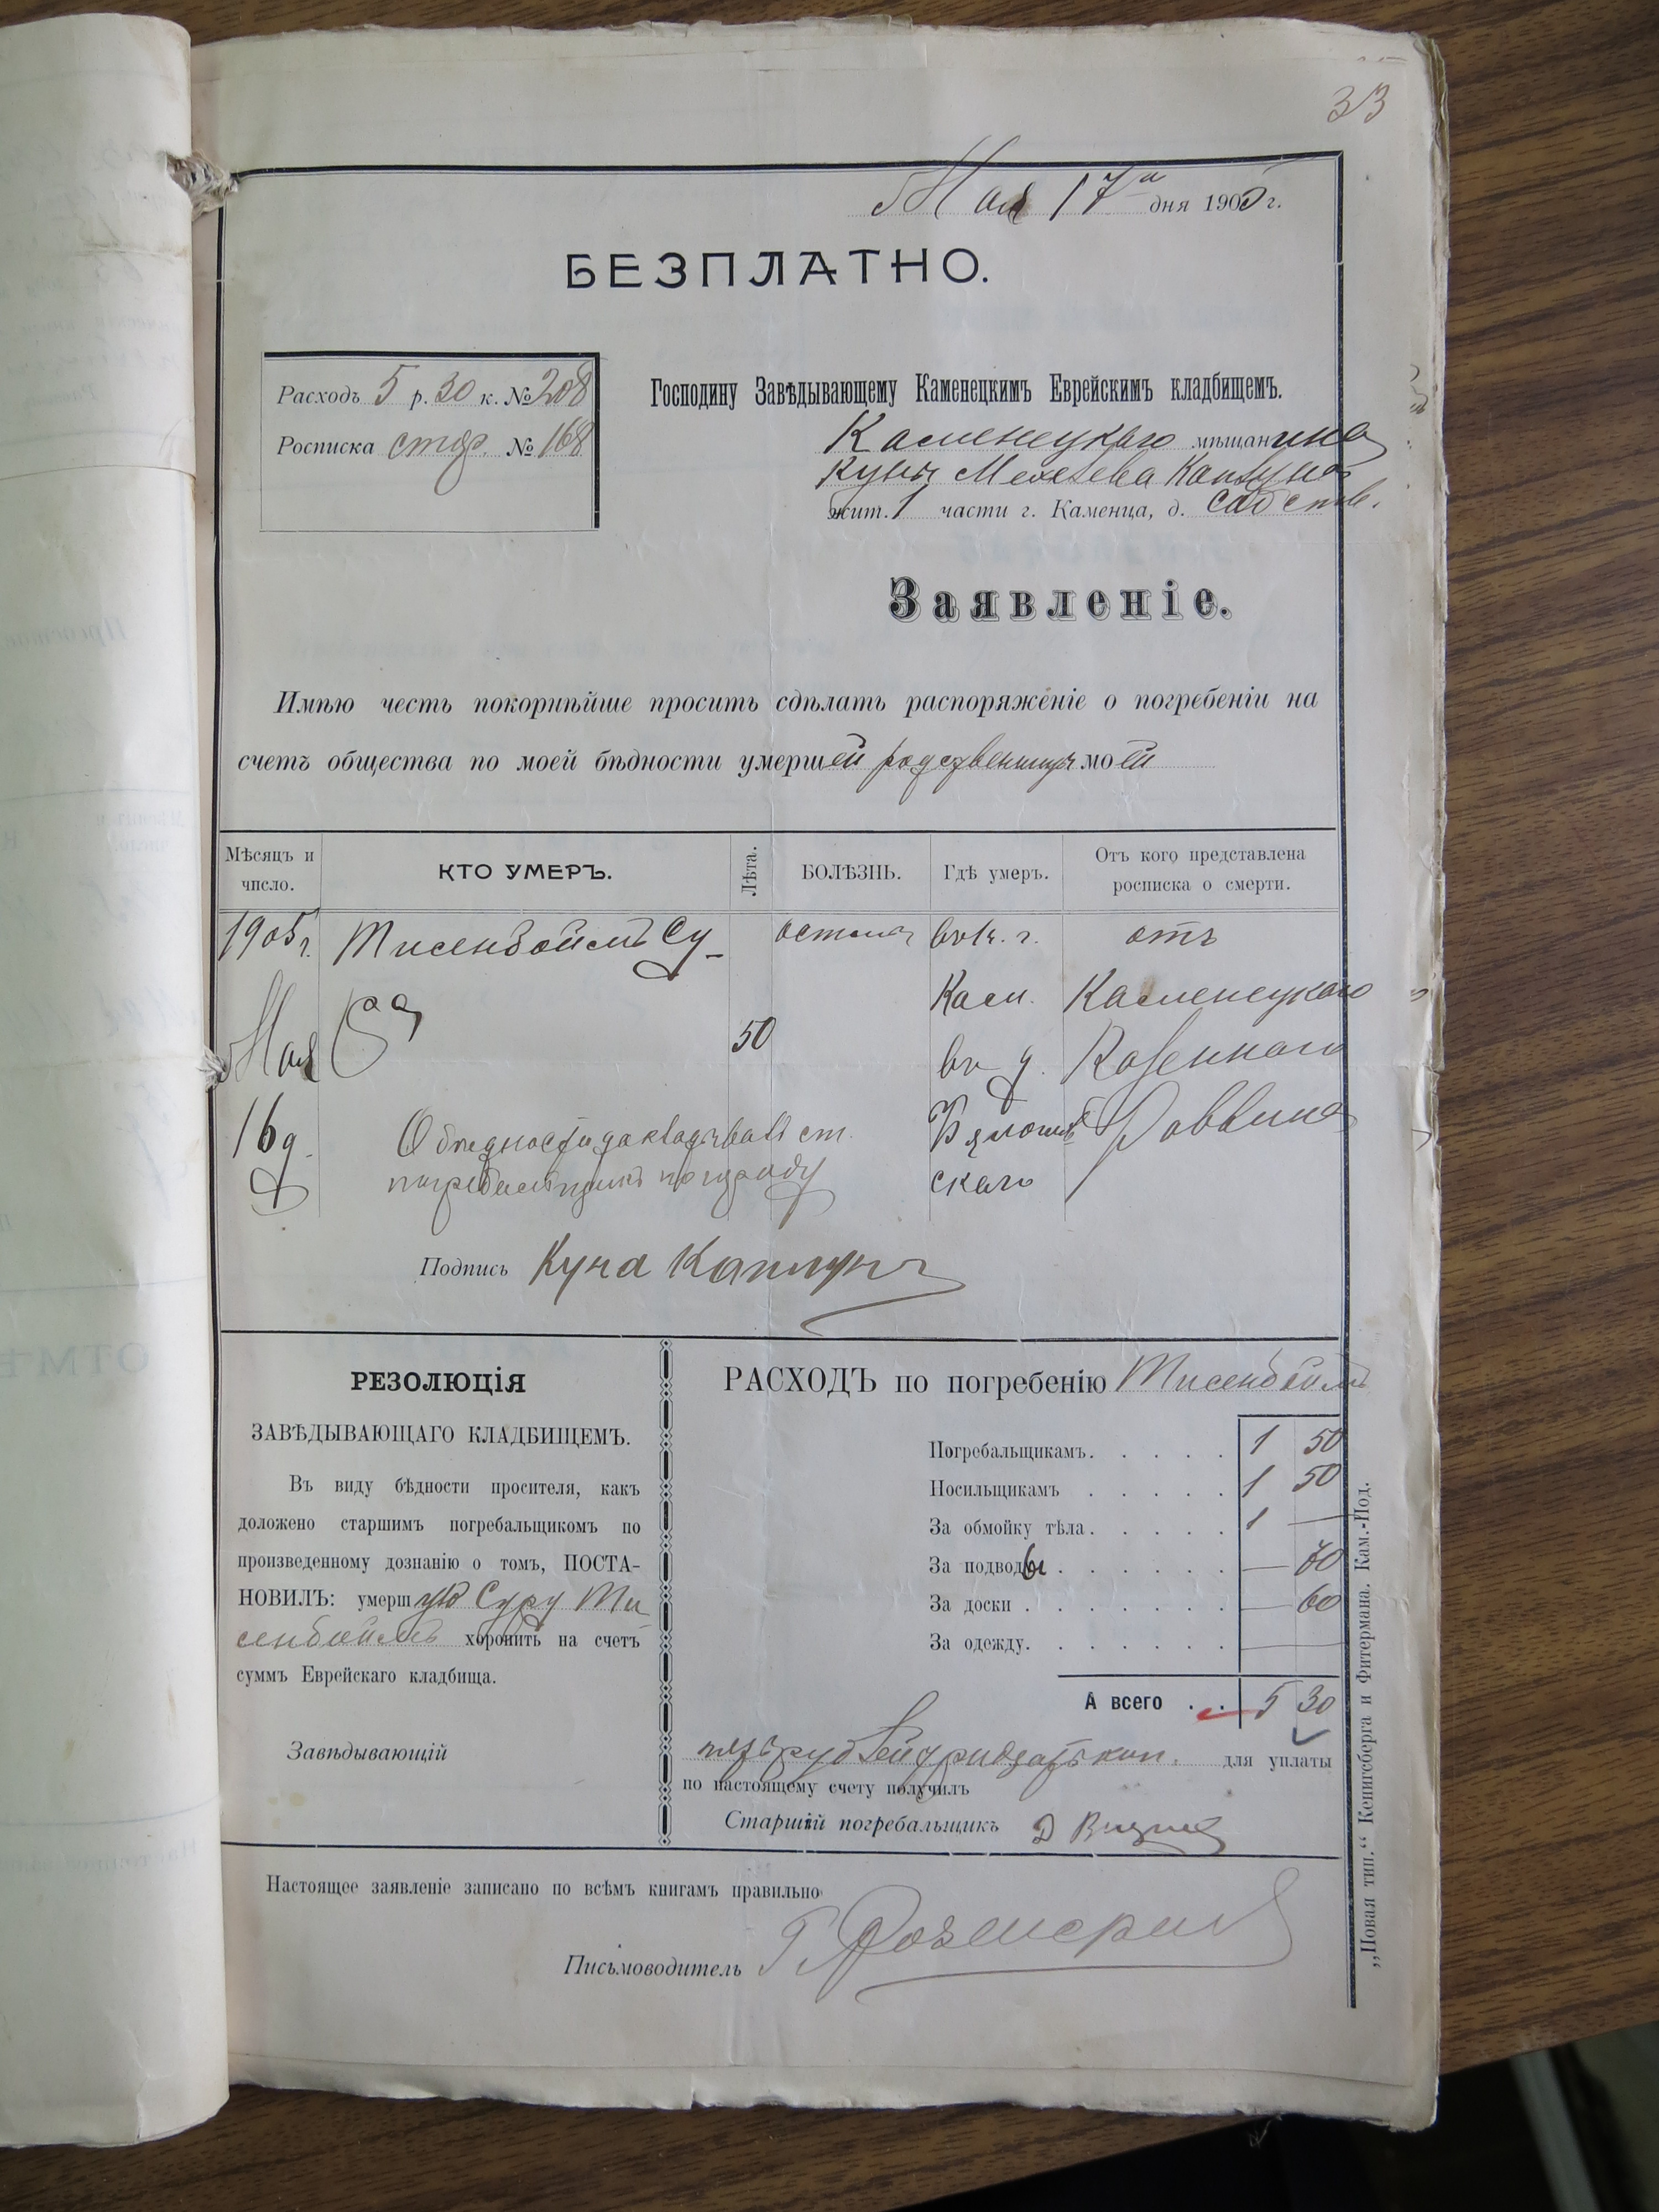 33
Мая 17го дня 1905 г.
БЕЗПЛАТНО.
Расходъ 5 р. 30 к. № 208
Росписка стар. № 168
Господину Завѣдывающему Каменецкимъ Еврейскимъ кладбищемъ.
Каменецкаго мѣщанина
Куны
жит. 1 части г. Каменца, д. собств.
Заявленіе.
Имѣю честь покорнѣйше просить сдѣлать распоряженіе о погребеніи на
счетъ общества по моей бѣдности умершей родственницы моей
Мѣсяцъ и число.
КТО УМЕРЪ.
Лѣта.
БОЛѢЗНЬ.
Гдѣ умеръ.
Отъ кого представлена росписка о смерти.
1905 г. Тисенбоймъ Су- въ К. г. отъ
Мая ра 50 Кам. Каменецкаго
въ д. Казеннаго
16 д. Раввина
скаго
О бѣдности докладывалъ ст.
погребальщикъ
Подпись Куна Каплунъ
РЕЗОЛЮЦІЯ
ЗАВѢДЫВАЮЩАГО КЛАДБИЩЕМЪ.
Въ виду бѣдности просителя, какъ
доложено старшимъ погребальщикомъ по
произведенному дознанію о томъ, ПОСТА-
НОВИЛЪ: умершую Суру Ти
сенбоймъ хоронить на счетъ
суммъ Еврейскаго кладбища.
Завѣдывающій
РАСХОДЪ по погребенію Тисенбоймъ
Погребальщикамъ. . . . . 1 50
Носильщикамъ . . . . . 1 50
За обмойку тѣла. . . . . 1 —
За подводы . . . . . . — 70
За доски . . . . . . . — 60
За одежду. . . . . . . —
А всего . . 5 30
пять рублей тридцать коп. для уплаты
по настоящему счету получилъ
Старшій погребальщикъ Д
Настоящее заявленіе записано по всѣмъ книгамъ правильно
Письмоводитель
„Новая тип.“ Кенигсберга и Фитермана. Кам.-Под.